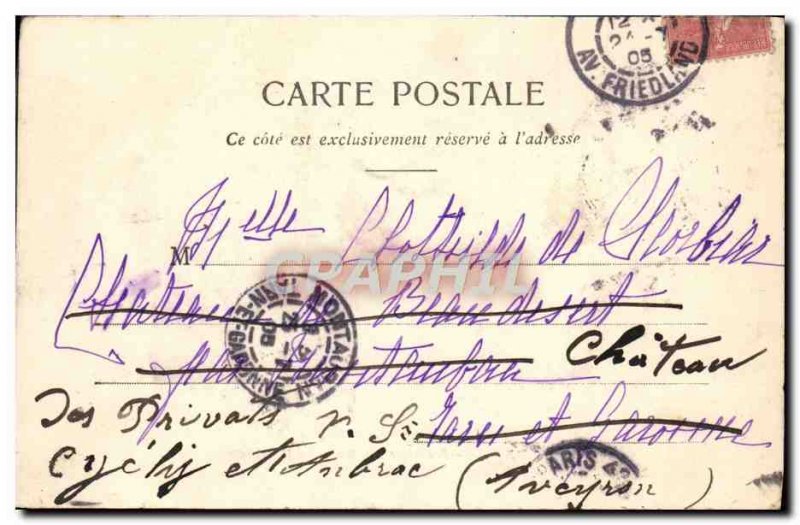 12
24
05
AV. FRIEDLAND
CARTE POSTALE
Ce côté est exclusivement réservé à l'adresse
M elle Clothilde de
CPARAPHIL
Château de Beaudésert
MONTAUBAN
TARN-ET-GARONNE
05
par Montauban Château
des Privats p. St Tarn et Garonne
d'Aubrac (Aveyron)
PARIS